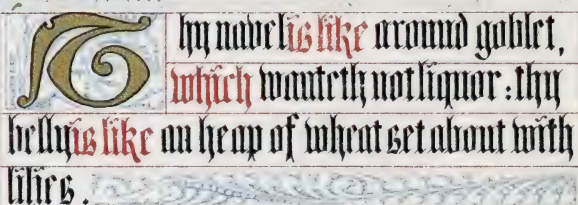 Thy navel is like a round goblet,
which wanteth not liquor : thy
belly is like an heap of wheat set about with
lilies.